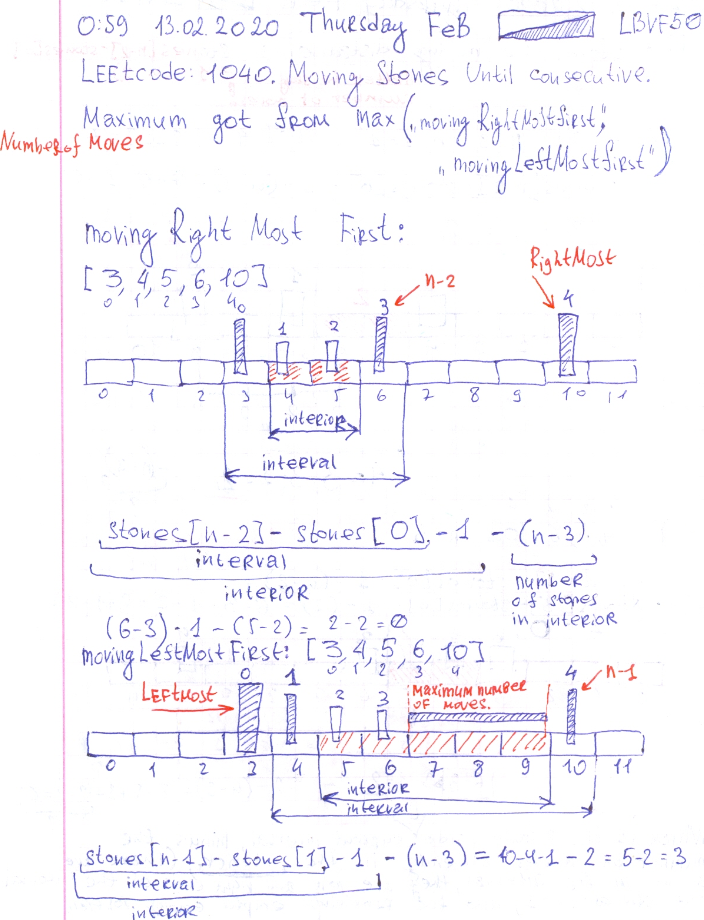 0:59 13.02.2020 Thursday FeB LBVF50
LEEtcode: 1040. Moving Stones Until consecutive.
Maximum got from max („moving RightMostfirst",
Number of Moves
„movingLeftMostfirst")
moving Right Most First:
[3, 4, 5, 6, 10]
0 1 2 3 4
RightMost
n-2
0 1 2 3 4
0 1 2 3 4 5 6 7 8 9 10 11
interior
interval
stones[n-2] - stones[0] - 1 - (n-3)
interval
interior
number
of stones
in interior
(6-3) - 1 - (5-2) = 2-2 = 0
movingLeftMostFirst: [3, 4, 5, 6, 10]
0 1 2 3 4
LEFtMost
0 1 2 3 4
Maximum number
of moves.
n-1
0 1 2 3 4 5 6 7 8 9 10 11
interior
interval
stones[n-1] - stones[1] - 1 - (n-3) = 10-4-1-2 = 5-2 = 3
interval
interior